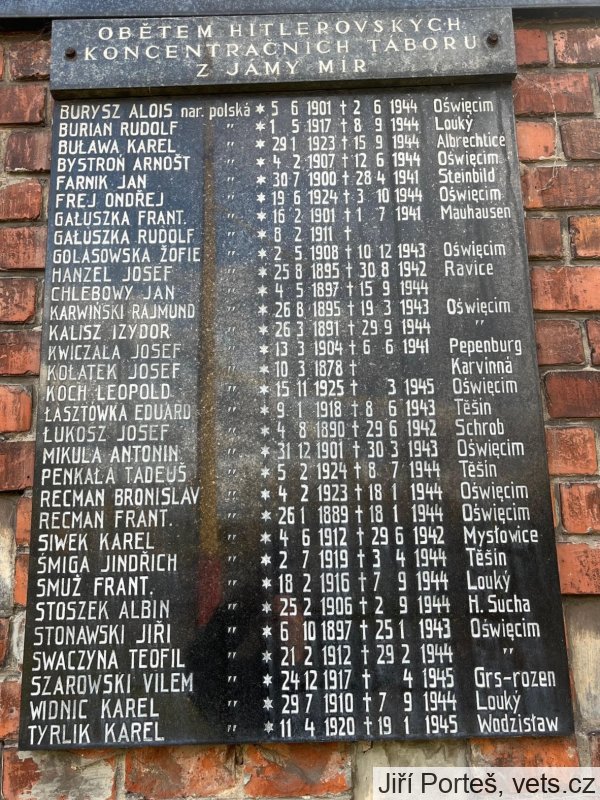 OBĚTEM HITLEROVSKÝCH
KONCENTRAČNÍCH TÁBORU
Z JÁMY MÍR
BURYSZ ALOIS nar. polská * 5 6 1901 † 2 6 1944 Oświęcim
BURIAN RUDOLF " * 1 5 1917 † 8 9 1944 Louký
BUŁAWA KAREL " * 29 1 1923 † 15 9 1944 Albrechtice
BYSTROŃ ARNOŠT " * 4 2 1907 † 12 6 1944 Oświęcim
FARNIK JAN " * 30 7 1900 † 28 4 1941 Steinbild
FREJ ONDŘEJ " * 19 6 1924 † 3 10 1944 Oświęcim
GAŁUSZKA FRANT. " * 16 2 1901 † 1 7 1941 Mauhausen
GAŁUSZKA RUDOLF " * 8 2 1911 †
GOLASOWSKA ŽOFIE " * 2 5 1908 † 10 12 1943 Oświęcim
HANZEL JOSEF " * 25 8 1895 † 30 8 1942 Ravice
CHLEBOWY JAN " * 4 5 1897 † 15 9 1944
KARWIŃSKI RAJMUND " * 26 8 1895 † 19 3 1943 Oświęcim
KALISZ IZYDOR " * 26 3 1891 † 29 9 1944 "
KWICZAŁA JOSEF " * 13 3 1904 † 6 6 1941 Pepenburg
KOŁATEK JOSEF " * 10 3 1878 † Karvinná
KOCH LEOPOLD " * 15 11 1925 † 3 1945 Oświęcim
ŁASZTÓWKA EDUARD " * 9 1 1918 † 8 6 1943 Těšín
ŁUKOSZ JOSEF " * 4 8 1890 † 29 6 1942 Schrob
MIKULA ANTONIN " * 31 12 1901 † 30 3 1943 Oświęcim
PENKAŁA TADEUŠ " * 5 2 1924 † 8 7 1944 Těšín
RECMAN BRONISLAV " * 4 2 1923 † 18 1 1944 Oświęcim
RECMAN FRANT. " * 26 1 1889 † 18 1 1944 Oświęcim
SIWEK KAREL " * 4 6 1912 † 29 6 1942 Mysłowice
ŚMIGA JINDŘICH " * 2 7 1919 † 3 4 1944 Těšín
SMUŻ FRANT. " * 18 2 1916 † 7 9 1944 Louký
STOSZEK ALBIN " * 25 2 1906 † 2 9 1944 H. Sucha
STONAWSKI JIŘÍ " * 6 10 1897 † 25 1 1943 Oświęcim
SWACZYNA TEOFIL " * 21 2 1912 † 29 2 1944 "
SZAROWSKI VILEM " * 24 12 1917 † 4 1945 Grs-rozen
WIDNIC KAREL " * 29 7 1910 † 7 9 1944 Louký
TYRLIK KAREL " * 11 4 1920 † 19 1 1945 Wodzisław
Jiří Porteš, vets.cz